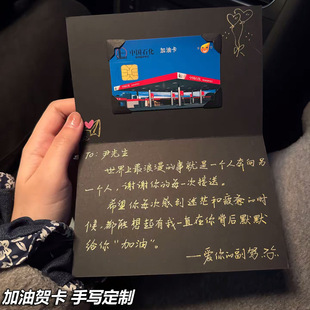 中国石化
加油卡
To: 尹先生
世界上最浪漫的事就是一个人奔向另
一个人，谢谢你的每一次接送。
希望你每次感到迷茫和疲惫的时
候，都能想起有我一直在你背后默默
给你“加油”。
——爱你的副驾
加油贺卡 手写定制